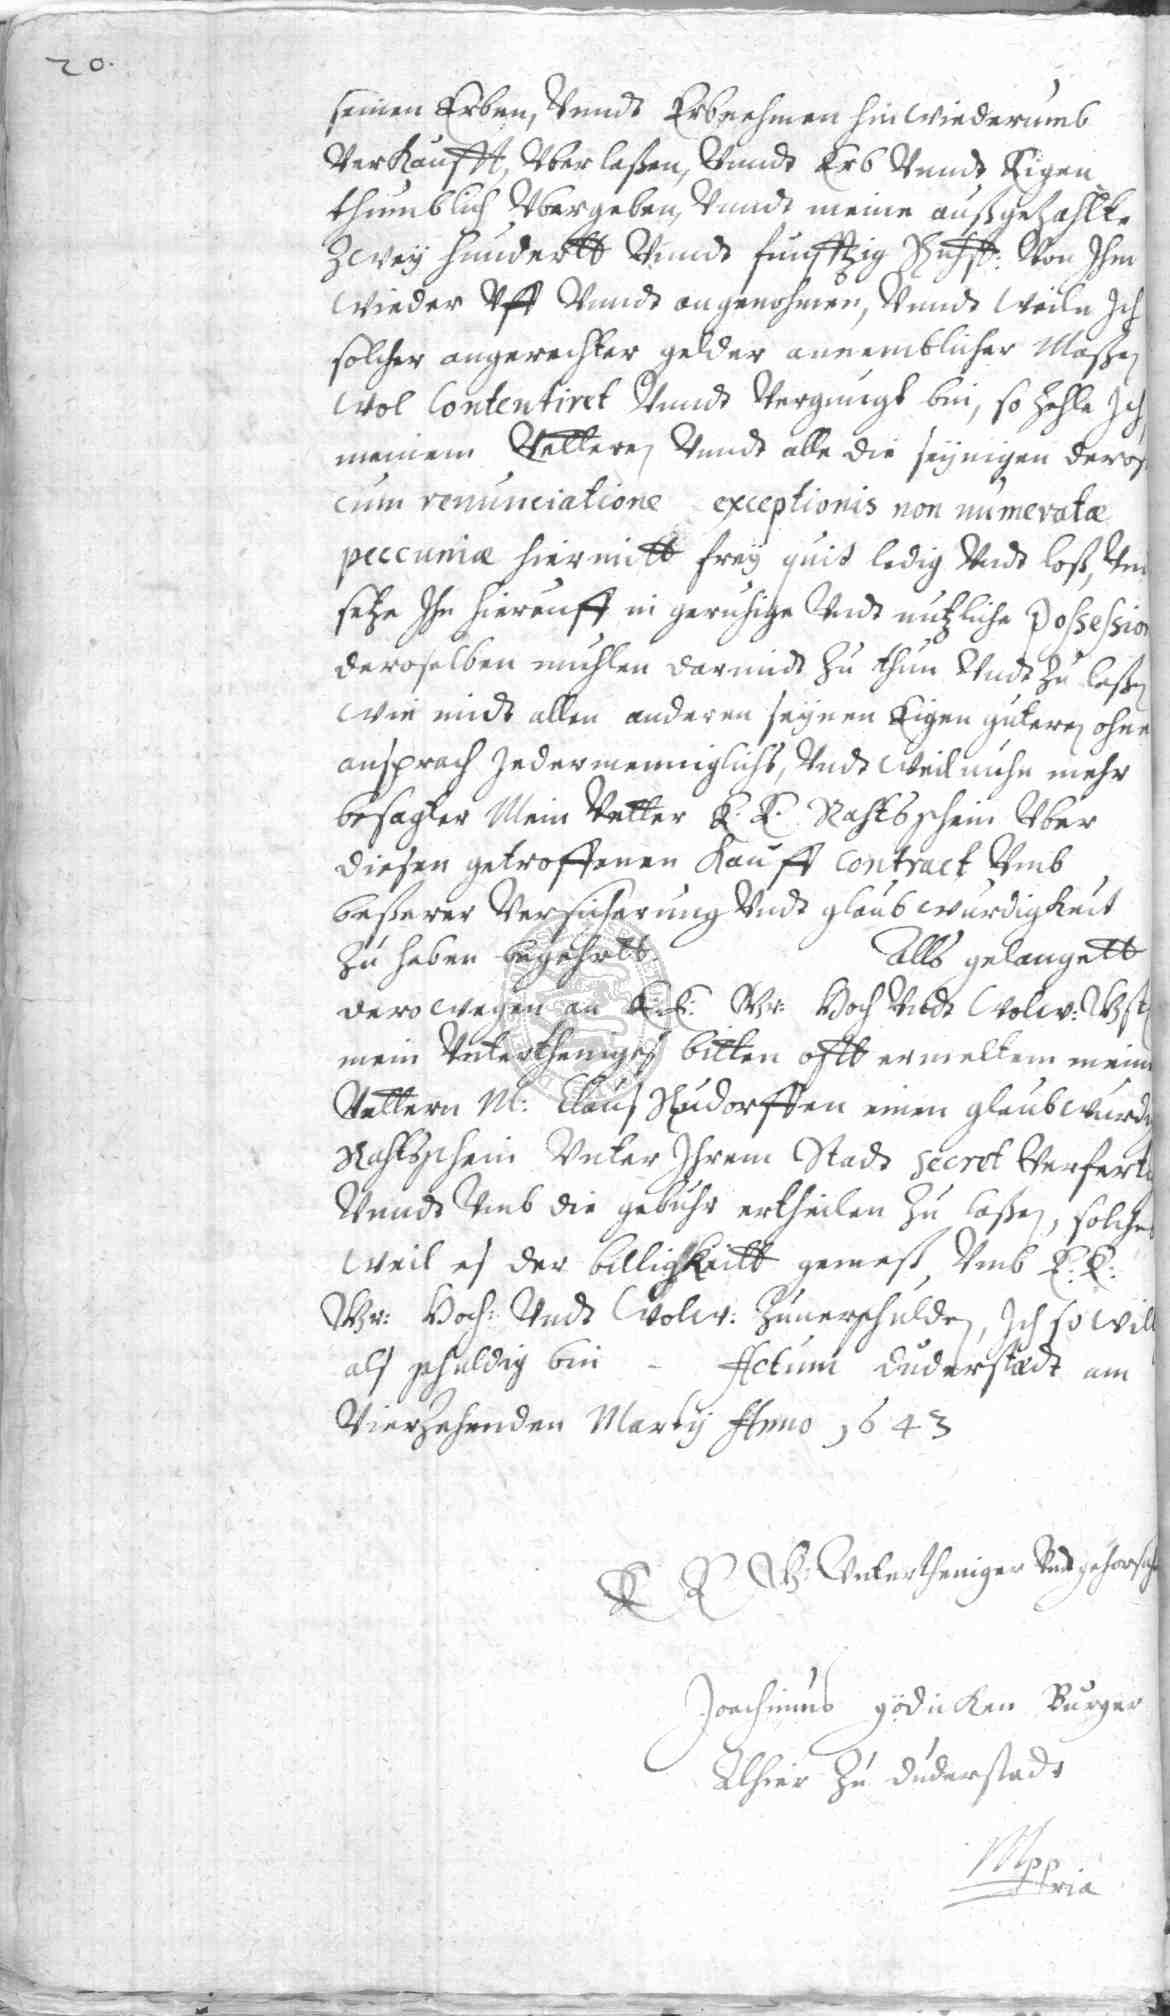 20.
seinen Erben, Vnndt Erbnehmen hinwiederumb
Verkaufft, Vberlaßen, Vnndt Erb Vnndt Eigen
thumblich Vbergeben, Vnndt meine außgezahlte
Zwey hundertt Vnndt funfftzig Rthlr: Von Ihm
wieder Vff Vnndt angenohmen, Vnndt weiln Ich
solcher angerechter gelder annemblicher Maßen
wol Contentiret Vnndt Vergnugt bin, so zehle Ich
meinem Vetteren Vnndt alle die seynigen
cum renunciatione exceptionis non numeratæ
peccuniæ hiermitt frey quit ledig Vndt loß,
setze Ihn hierauff in geruhige Vndt nutzliche possession
deroselben muhlen darmidt zu thun Vndt zu laßen
wie midt allen anderen seynen Eigen guteren ohne
ansprach Jedermenniglichs, Vndt weil nuhn mehr
besagter Mein Vetter E. E. Rahtsschein Vber
diesen getroffenen Kauff contract Vmb
beßerer Versicherung Vndt glaubwurdigkeit
zu haben begehrtt. Alls gelangett
derowegen an E: E: Wr: Hoch Vndt Wolw:
mein Vnterthäniges bitten offt ermeltem mein
Vettern M: Claus Rudorffen einen glaubwurd
Rahtsschein Vnter Ihrem Stadt secret Verfert
Vnndt Vmb die gebuhr ertheilen zu laßen, solches
weil es der billigkeitt gemeß, Vmb E: E:
Wr: Hoch: Vndt Wolw: zuuerschulden, Ich so will
als schuldig bin - Actum Duderstadt am
Vierzehenden Martij Anno 1643
E E W: Vntertheniger Vnd gehorsahm
Joachimus gödicken Burger
Alhier zu Duderstadt
Mppria